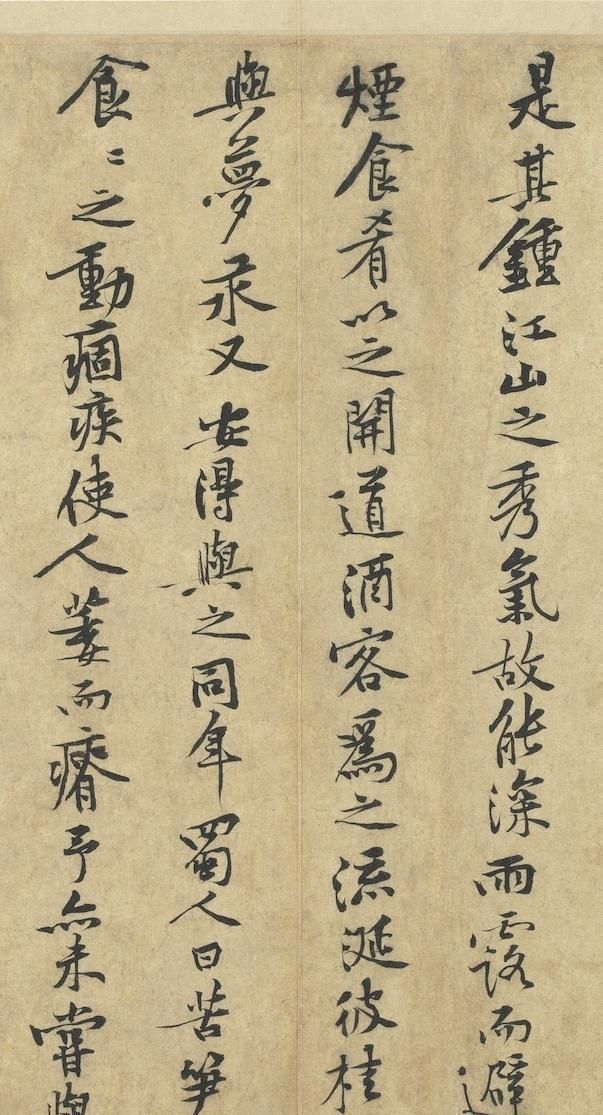 是其鍾江山之秀氣故能深雨露而避
煙食肴以之開道酒客爲之流涎彼桂
與夢汞又安得與之同年蜀人曰苦笋
食〻之動痼疾使人萎而瘠予亦未嘗與